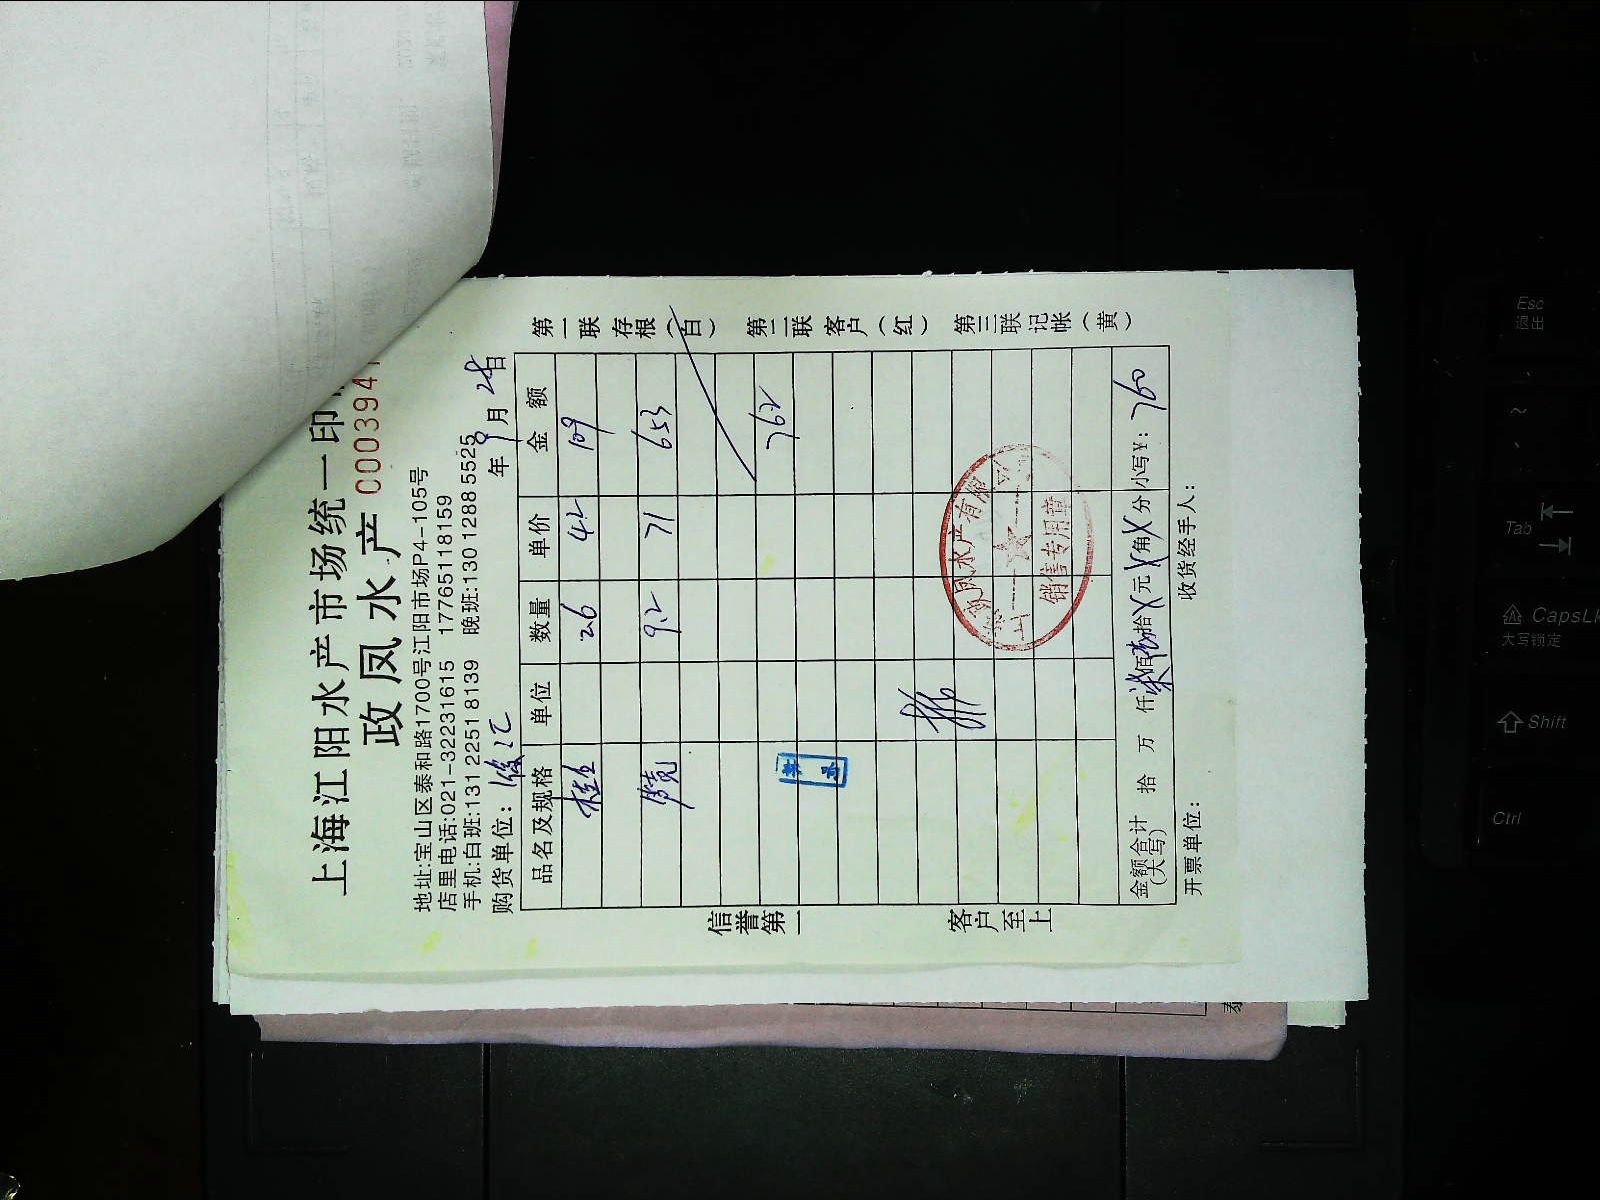 上海江阳水产市场统一印
政凤水产 000394
地址:宝山区泰和路1700号江阳市场P4-105号
店里电话:021-32231615 17765118159
手机:白班:131 2251 8139 晚班:130 1288 5525
购货单位: 年 9 月 28 日
品名及规格 单位 数量 单价 金额
桂鱼 2.6 42 109
9.2 71 653
762
金额合计(大写) 拾 万 仟 柒 佰 拾 X 元 X 角 X 分 小写¥: 760
开票单位: 收货经手人:
第一联 存根(白) 第二联 客户(红) 第三联 记帐(黄)
信誉第一 客户至上
凤水产有限
销售专用章
Esc
退出
~
Tab
CapsL
大写锁定
Shift
Ctrl